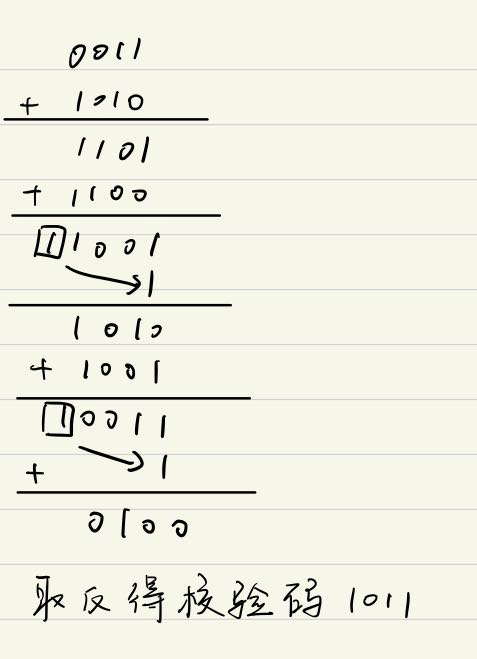 0011
+ 1010
1101
+ 1100
1 1001
1
1010
+ 1001
1 0011
+ 1
0100
取反得校验码 1011